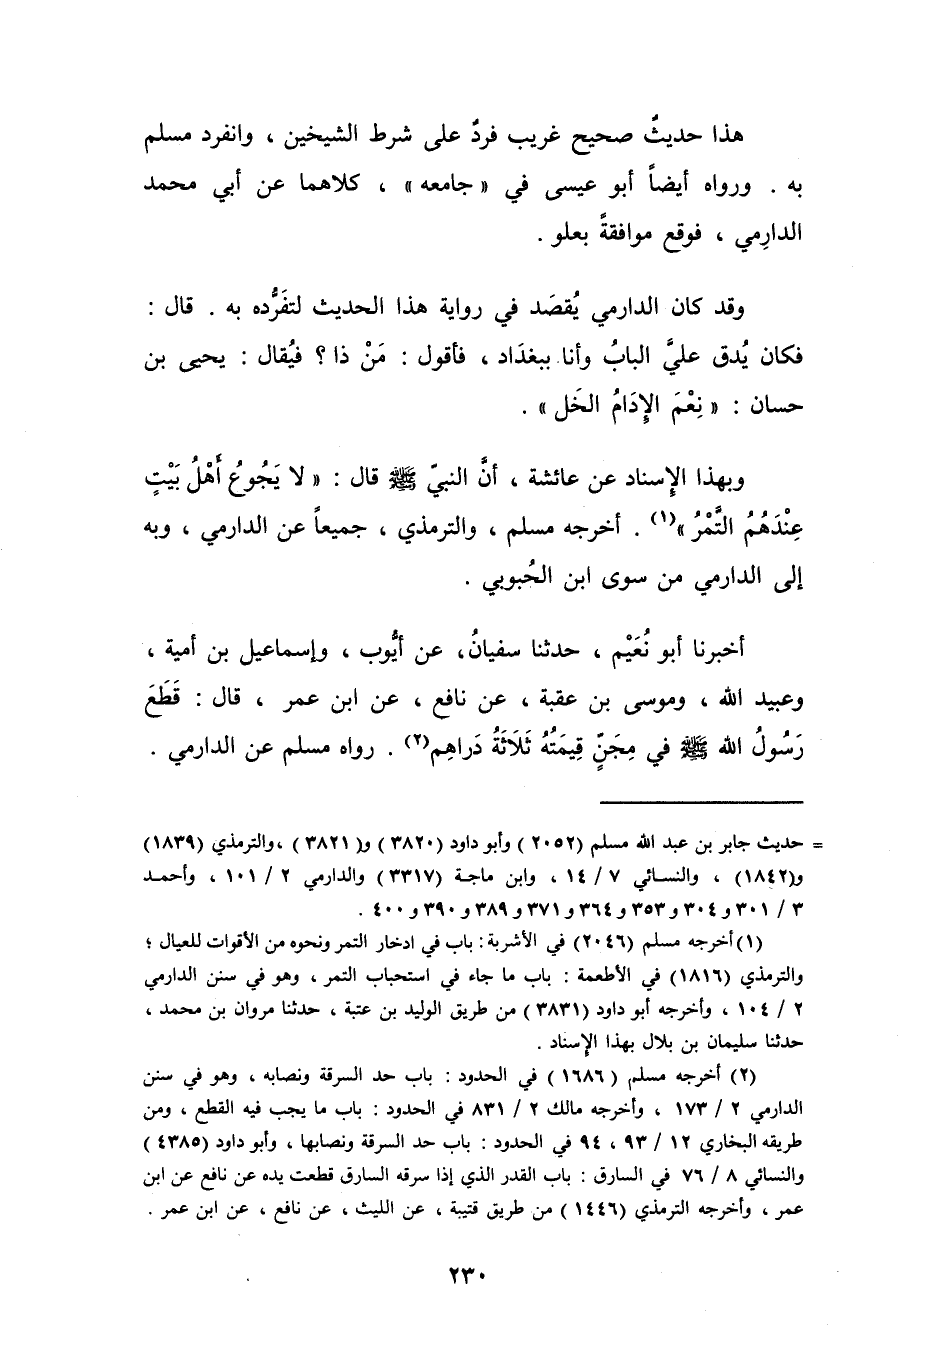 هذا حديثٌ صحيح غريب فردٌ على شرط الشيخين ، وانفرد مسلم
به . ورواه أيضاً أبو عيسى في «جامعه» ، كلاهما عن أبي محمد
الدارِمي ، فوقع موافقةً بعلو .
وقد كان الدارمي يُقصَد في رواية هذا الحديث لتفَرُّده به . قال :
فكان يُدق عليَّ البابُ وأنا ببغدَاد ، فأقول : مَنْ ذا ؟ فيُقال : يحيى بن
حسان : « نِعْمَ الإِدَامُ الخَل » .
وبهذا الإِسناد عن عائشة ، أنَّ النبيّ ﷺ قال : « لا يَجُوعُ أَهْلُ بَيْتٍ
عِنْدَهُمُ التَّمْرُ »(١) . أخرجه مسلم ، والترمذي ، جميعاً عن الدارمي ، وبه
إلى الدارمي من سوى ابن الحُبوبي .
أخبرنا أبو نُعَيْم ، حدثنا سفيانُ، عن أيُّوب ، وإسماعيل بن أمية ،
وعبيد الله ، وموسى بن عقبة ، عن نافع ، عن ابن عمر ، قال : قَطَعَ
رَسُولُ الله ﷺ في مِجَنٍّ قِيمَتُهُ ثَلَاثَةُ دَراهِم(٢) . رواه مسلم عن الدارمي .
= حديث جابر بن عبد الله مسلم (٢٠٥٢) وأبو داود (٣٨٢٠) و( ٣٨٢١) ،والترمذي (١٨٣٩)
و(١٨٤٢) ، والنسائي ٧ / ١٤ ، وابن ماجة (٣٣١٧) والدارمي ٢ / ١٠١ ، وأحمد
٣ / ٣٠١ و ٣٠٤ و ٣٥٣ و ٣٦٤ و ٣٧١ و ٣٨٩ و ٣٩٠ و ٤٠٠ .
(١) أخرجه مسلم (٢٠٤٦) في الأشربة : باب في ادخار التمر ونحوه من الأقوات للعيال ؛
والترمذي (١٨١٦) في الأطعمة : باب ما جاء في استحباب التمر ، وهو في سنن الدارمي
٢ / ١٠٤ ، وأخرجه أبو داود (٣٨٣١) من طريق الوليد بن عتبة ، حدثنا مروان بن محمد ،
حدثنا سليمان بن بلال بهذا الإِسناد .
(٢) أخرجه مسلم (١٦٨٦) في الحدود : باب حد السرقة ونصابه ، وهو في سنن
الدارمي ٢ / ١٧٣ ، وأخرجه مالك ٢ / ٨٣١ في الحدود : باب ما يجب فيه القطع ، ومن
طريقه البخاري ١٢ / ٩٣ ، ٩٤ في الحدود : باب حد السرقة ونصابها ، وأبو داود (٤٣٨٥)
والنسائي ٨ / ٧٦ في السارق : باب القدر الذي إذا سرقه السارق قطعت يده عن نافع عن ابن
عمر ، وأخرجه الترمذي (١٤٤٦) من طريق قتيبة ، عن الليث ، عن نافع ، عن ابن عمر .
٢٣٠